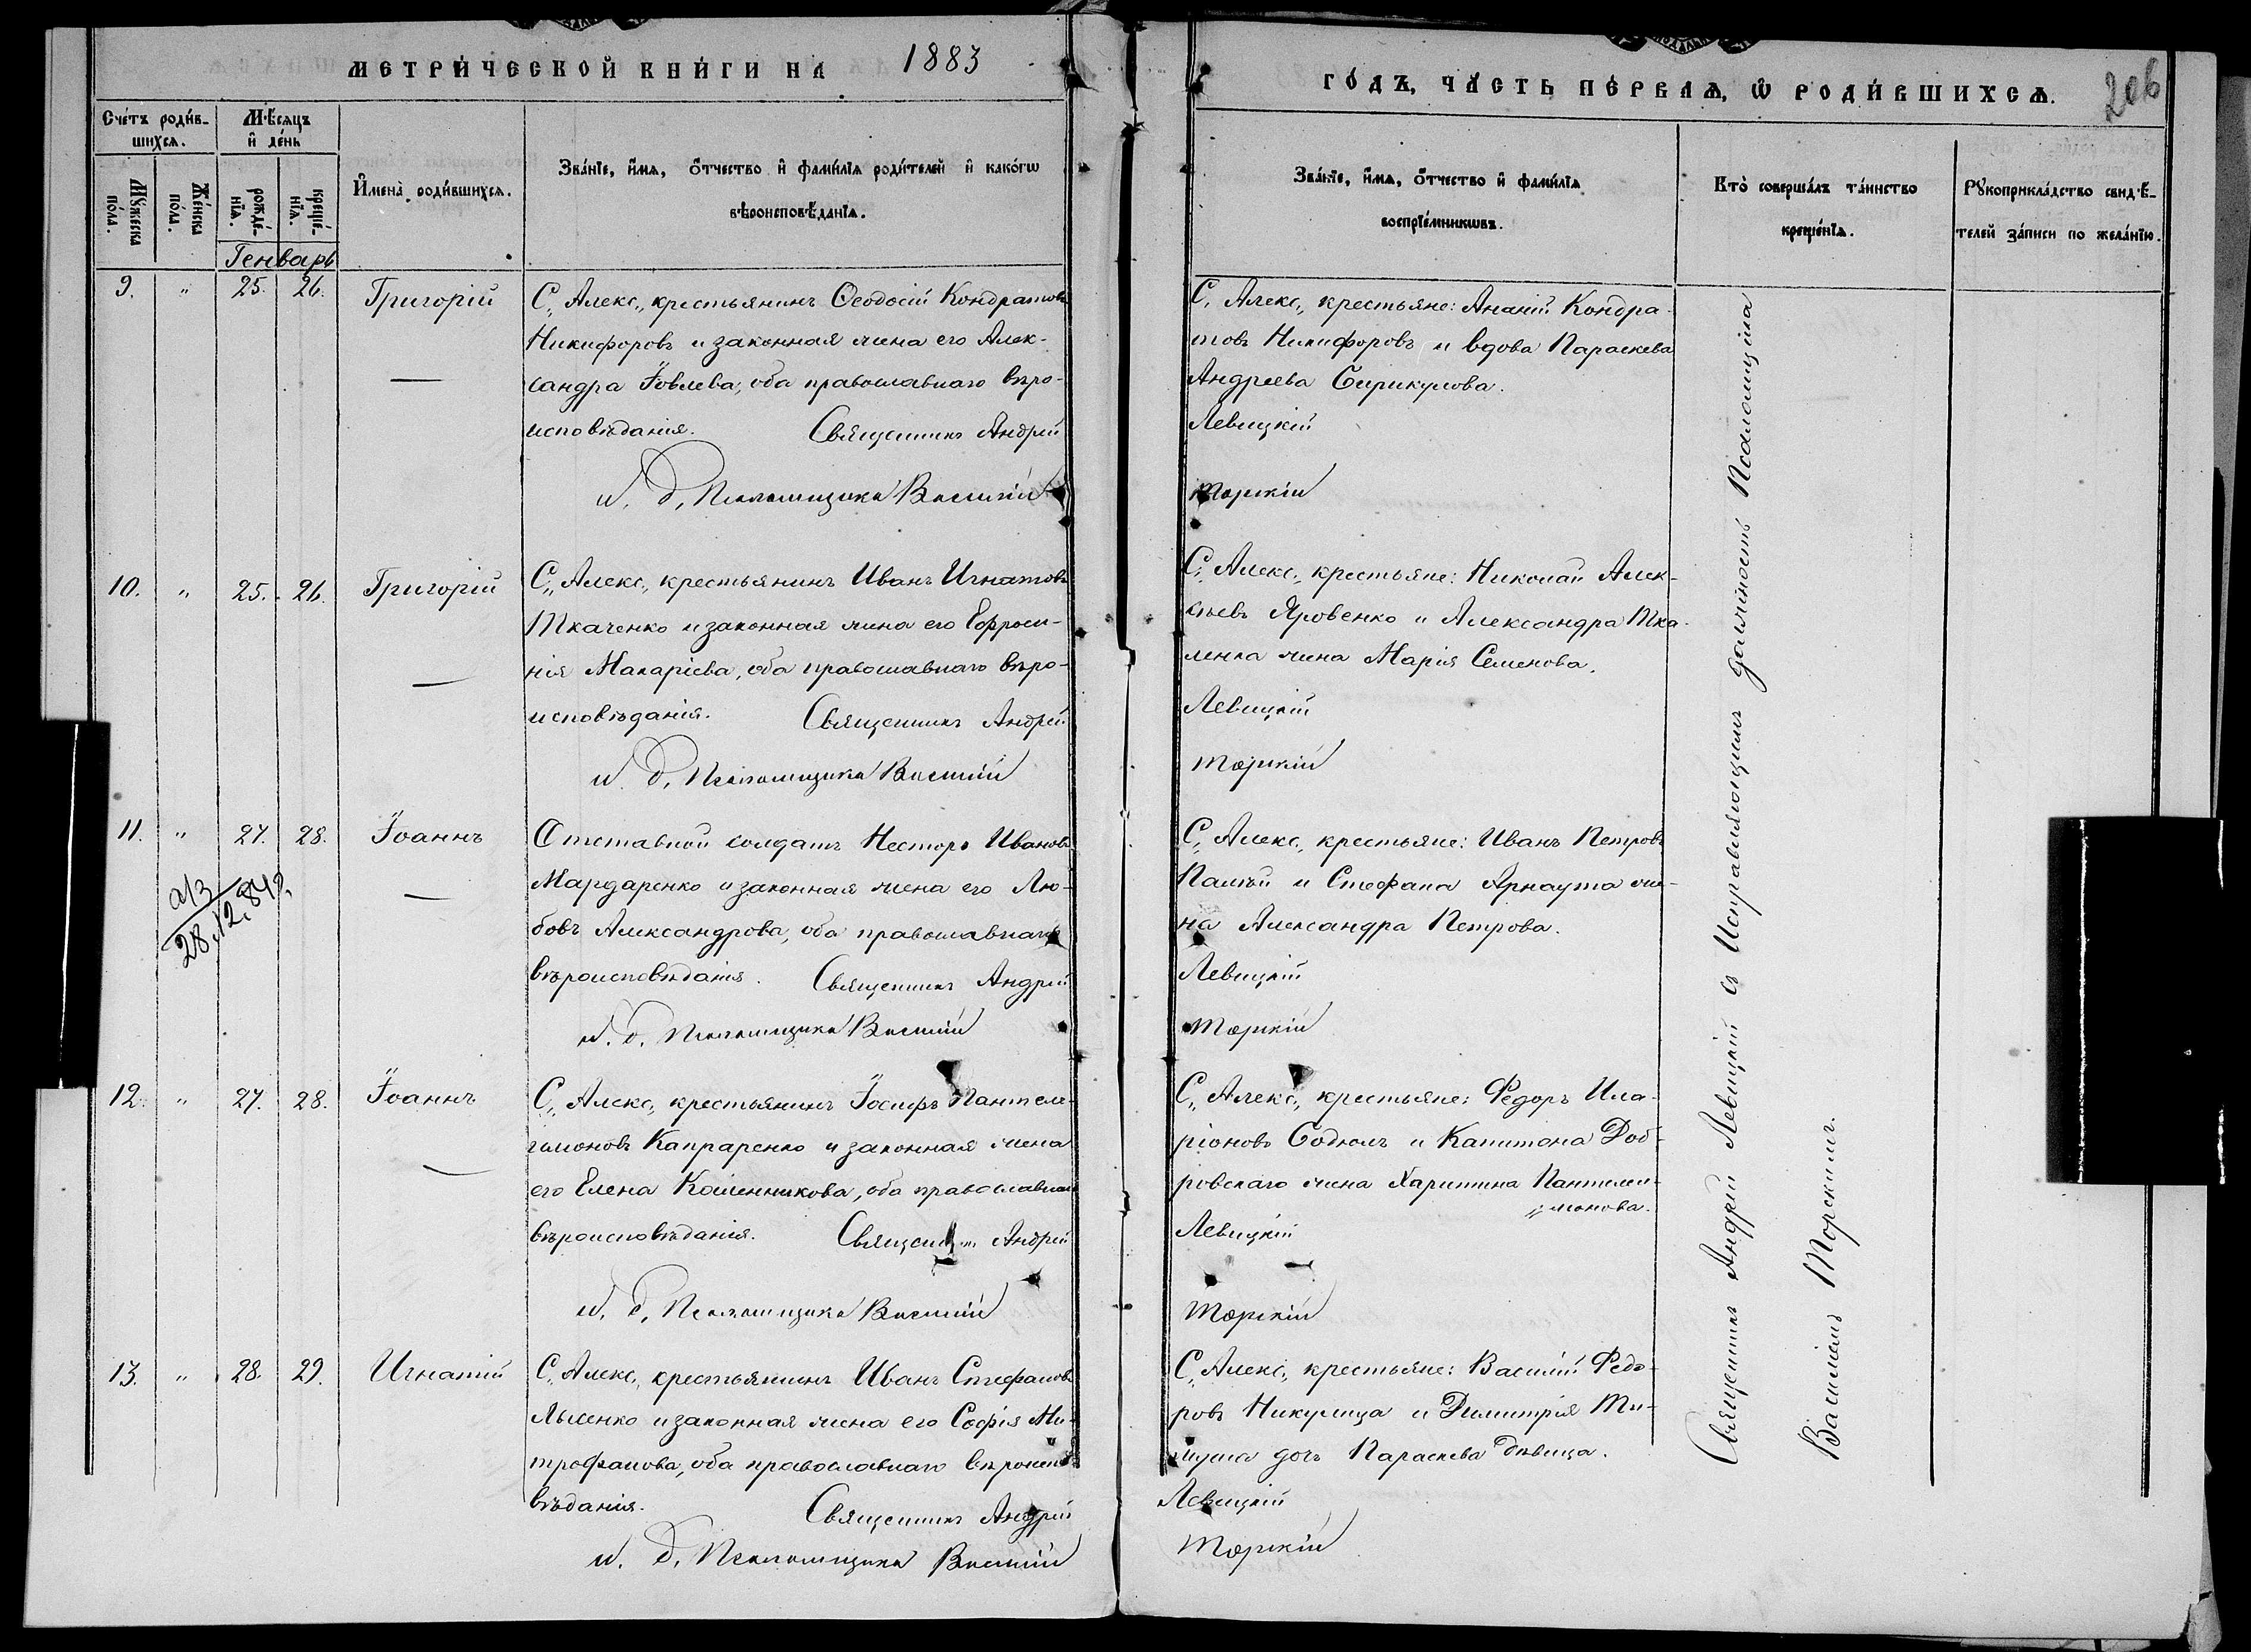 МЕТРИ́ЧЕСКОЙ КНИ́ГИ НА 1883
ГО́ДЪ, ЧА́СТЬ ПЕ́РВАѦ, Ѡ РОДИ́ВШИХСѦ. 206
Сче́тъ роди́в-
шихсѧ.
Мѣ́сѧцъ
и де́нь
Мꙋ́жеска по́ла.
Же́нска по́ла.
рожде́-
нїѧ.
креще́-
нїѧ.
Генварь
Имена̀ роди́вшихсѧ.
Зва́нїе, и́мѧ, о́тчество и фами́лїѧ роди́телей и како́гѡ
вѣроисповѣ́данїѧ.
Зва́нїе, и́мѧ, о́тчество и фами́лїѧ
воспрїе́мникѡвъ.
Кто̀ соверша́лъ та́инство
креще́нїѧ.
Рꙋкоприкла́дство свидѣ́-
телей за́писи по жела́нїю.
9. " 25. 26. Григорій
С. Алекс., крестьянинъ Ѳеодосій Кондратовъ
Никифоровъ и законная жена его Алек-
сандра Іовлева, оба православнаго вѣро-
исповѣданія. Священникъ Андрей
и. д. Псаломщика Василій
С. Алекс., крестьяне: Ананій Кондра-
товъ Никифоровъ и вдова Параскева
Андреева Сирикулова.
Левицкій
Торскій
10. " 25. 26. Григорій
С. Алекс., крестьянинъ Иванъ Игнатовъ
Ткаченко и законная жена его Ефроси-
нія Макаріева, оба православнаго вѣро-
исповѣданія. Священникъ Андрей
и. д. Псаломщика Василій
С. Алекс., крестьяне: Николай Алек-
сѣевъ Яровенко и Александра Тка-
ленка жена Марія Семенова.
Левицкій
Торскій
11. " 27. 28. Іоаннъ
28.12.84
Отставной солдатъ Несторъ Ивановъ
Мардаренко и законная жена его Лю-
бовъ Александрова, оба православнаго
вѣроисповѣданія. Священникъ Андрей
и. д. Псаломщика Василій
С. Алекс., крестьяне: Иванъ Петровъ
Палій и Стефана Арнаута же-
на Александра Петрова.
Левицкій
Торскій
12. " 27. 28. Іоаннъ
С. Алекс., крестьянинъ Іосифъ Пантеле-
имоновъ Капраренко и законная жена
его Елена Колѣнникова, оба православнаго
вѣроисповѣданія. Священникъ Андрей
и. д. Псаломщика Василій
С. Алекс., крестьяне: Федоръ Ила-
ріоновъ Содколъ и Капитона Доб-
ровскаго жена Харитина Пантелеи-
монова.
Левицкій
Торскій
13. " 28. 29. Игнатій
С. Алекс., крестьянинъ Иванъ Стефановъ
Лысенко и законная жена его Софія Ми-
трофанова, оба православнаго вѣроиспо-
вѣданія. Священникъ Андрей
и. д. Псаломщика Василій
С. Алекс., крестьяне: Василій Федо-
ровъ Никулица и Димитрія
дочь Параскева дѣвица.
Левицкій
Торскій
Священникъ Андрей Левицкій съ Исправляющимъ должность Псаломщика
Василіемъ Торскимъ.